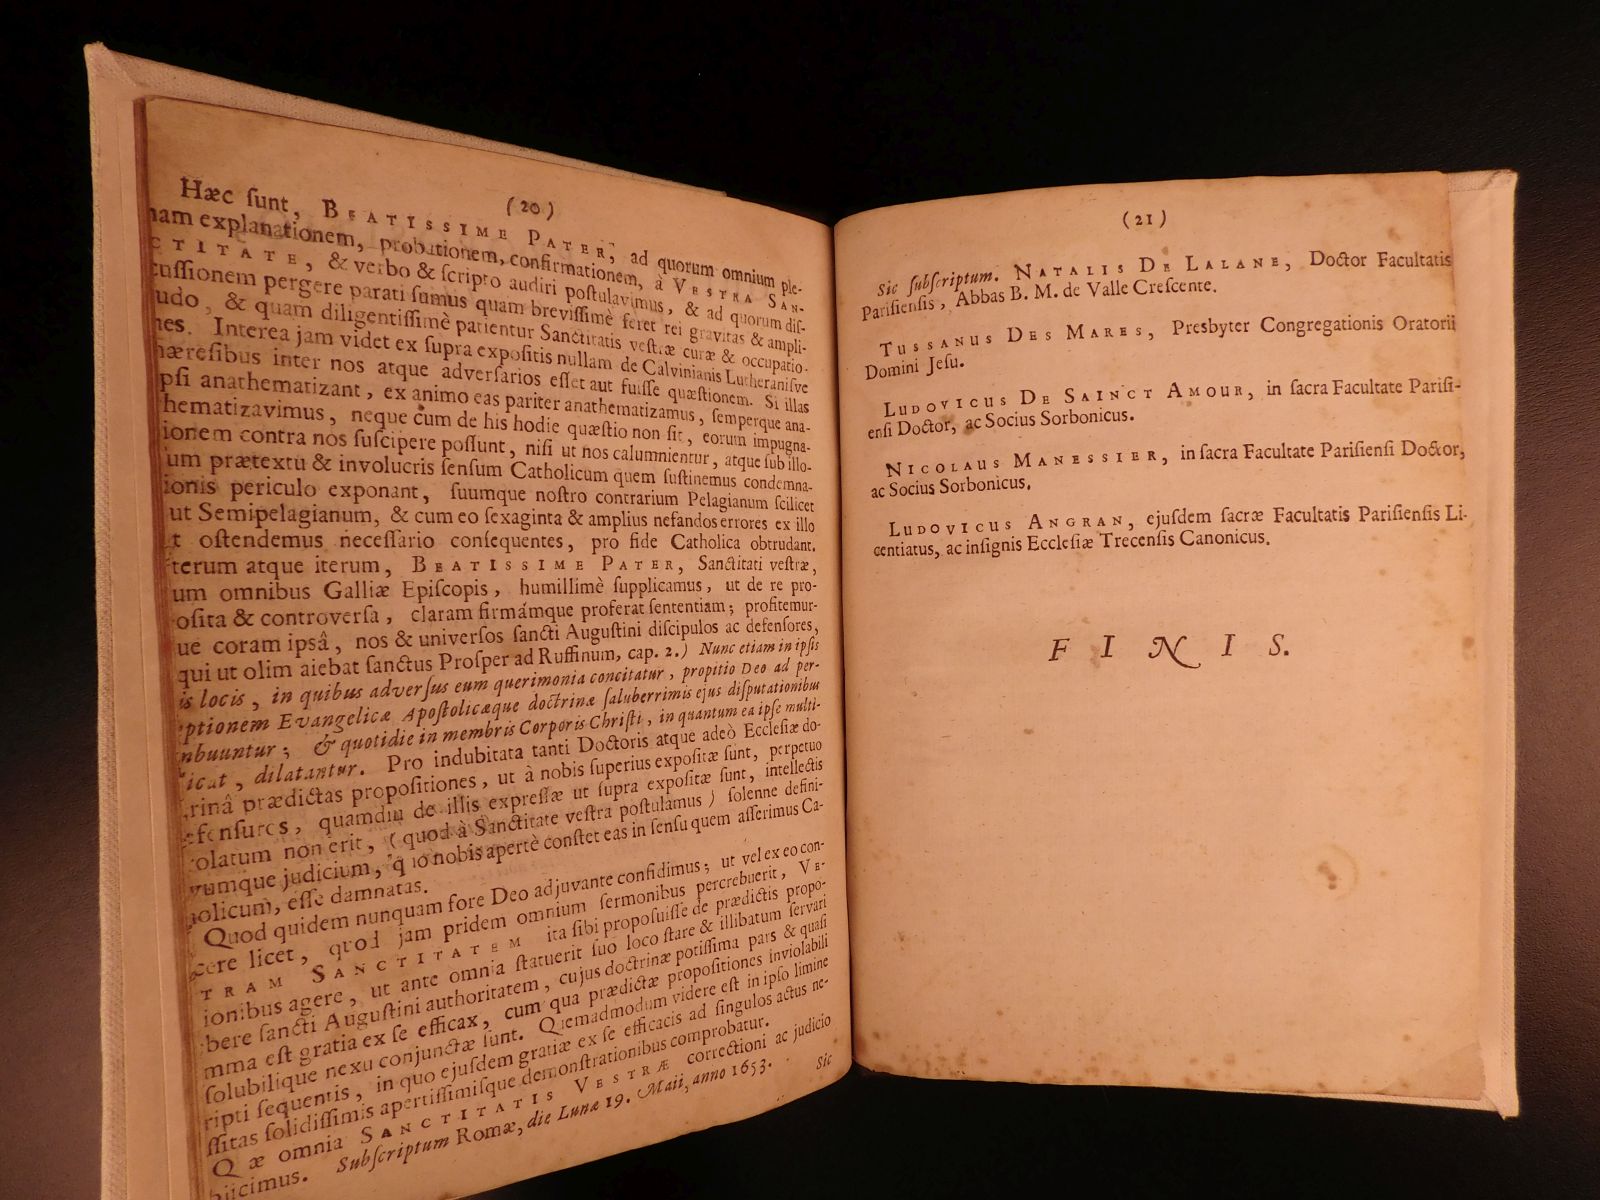 (20)
Hæc sunt, BEATISSIME PATER, ad quorum omnium ple-
nam explanationem, probationem, confirmationem, à VESTRA SAN-
CTITATE, & verbo & scripto audiri postulavimus, & ad quorum dis-
cussionem pergere parati sumus quam brevissimè feret rei gravitas & ampli-
udo, & quam diligentissimè patientur Sanctitatis vestræ curæ & occupatio-
nes. Interea jam videt ex supra expositis nullam de Calvinianis Lutheranisve
hæresibus inter nos atque adversarios esset aut fuisse quæstionem. Si illas
psi anathematizant, ex animo eas pariter anathematizamus, semperque ana-
hematizavimus, neque cum de his hodie quæstio non sit, eorum impugna-
ionem contra nos suscipere possunt, nisi ut nos calumnientur, atque sub illo-
um prætextu & involucris sensum Catholicum quem sustinemus condemna-
ionis periculo exponant, suumque nostro contrarium Pelagianum scilicet
ut Semipelagianum, & cum eo sexaginta & amplius nefandos errores ex illo
t ostendemus necessario consequentes, pro fide Catholica obtrudant.
terum atque iterum, BEATISSIME PATER, Sanctitati vestræ,
um omnibus Galliæ Episcopis, humillimè supplicamus, ut de re pro-
osita & controversa, claram firmámque proferat sententiam; profitemur-
ue coram ipsâ, nos & universos sancti Augustini discipulos ac defensores,
qui ut olim aiebat sanctus Prosper ad Ruffinum, cap. 2.) Nunc etiam in ipsis
is locis, in quibus adversus eum querimonia concitatur, propitio Deo ad per-
eptionem Evangelicæ Apostolicæque doctrinæ saluberrimis ejus disputationibus
nbuuntur; & quotidie in membris Corporis Christi, in quantum ea ipse multi-
icat, dilatantur. Pro indubitata tanti Doctoris atque adeò Ecclesiæ do-
rinâ prædictas propositiones, ut à nobis superius expositæ sunt, perpetuo
efensures, quamdiu de illis expressæ ut supra expositæ sunt, intellectis
olatum non erit, (quod à Sanctitate vestra postulamus) solenne defini-
vumque judicium, quo nobis apertè constet eas in sensu quem asserimus Ca-
holicum, esse damnatas.
Quod quidem nunquam fore Deo adjuvante confidimus; ut vel ex eo con-
cere licet, quod jam pridem omnium sermonibus percrebuerit, VE-
TRAM SANCTITATEM ita sibi proposuisse de prædictis propo-
ionibus agere, ut ante omnia statuerit suo loco stare & illibatum servari
bere sancti Augustini authoritatem, cujus doctrinæ potissima pars & quasi
mma est gratia ex se efficax, cum qua prædictæ propositiones inviolabili
solubilique nexu conjunctæ sunt. Quemadmodum videre est in ipso limine
ripti sequentis, in quo ejusdem gratiæ ex se efficacis ad singulos actus ne-
ssitas solidissimis apertissimisque demonstrationibus comprobatur.
Q æ omnia SANCTITATIS VESTRÆ correctioni ac judicio
biicimus. Subscriptum Romæ, die Lunæ 19. Maii, anno 1653.
Sic
(21)
Sic subscriptum. NATALIS DE LALANE, Doctor Facultatis
Parisiensis, Abbas B. M. de Valle Crescente.
TUSSANUS DES MARES, Presbyter Congregationis Oratorii
Domini Jesu.
LUDOVICUS DE SAINCT AMOUR, in sacra Facultate Parisi-
ensi Doctor, ac Socius Sorbonicus.
NICOLAUS MANESSIER, in sacra Facultate Parisiensi Doctor,
ac Socius Sorbonicus.
LUDOVICUS ANGRAN, ejusdem sacræ Facultatis Parisiensis Li-
centiatus, ac insignis Ecclesiæ Trecensis Canonicus.
FINIS.